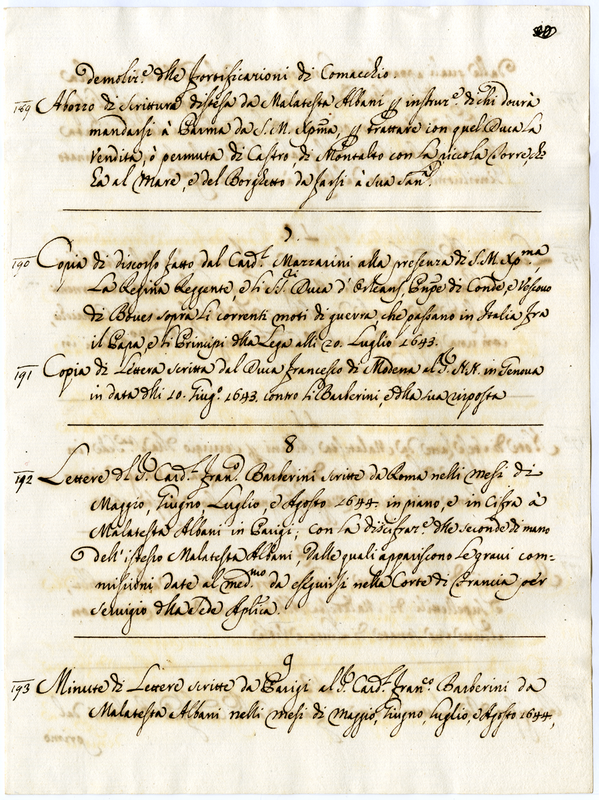 demoliz.e dlle fortificazioni di Comacchio.
189 Abozzo di scrittura distesa da Malatesta Albani p instruz.e di chi dourà
mandarsi à Parma da S. M. Xpma, p trattare con quel Duca la
Vendita, ò permuta di Castro, di Montalto con la piccola Torre, ch'
hà al Mare, e del Borghetto da farsi à sua San.tà
7.
190 Copia di discorso fatto dal Card.l Mazzarini alla presenza di S. M. Xp.ma
La Regina Reggente, e li SS.ri Duca d'Orleans Pnpe di Condè, e Vescouo
di Boues sopra li correnti moti di guerra, che passano in Italia fra
il Papa, e li Principi dlla Lega alli 20. Luglio 1643.
191 Copia di Lettera scritta dal Duca Francesco di Modena al S. N. N. in Genoua
in data dlli 10. Giug.o 1643. contro li Barberini, e dlla sua risposta
8
192 Lettere dl S. Card.l Fran.co Barberini scritte da Roma nelli mesi di
Maggio, Giugno, Luglio, e Agosto 1644. in piano, e in Cifra à
Malatesta Albani in Parigi, con la discifraz.e dlle seconde di mano
dell'istesso Malatesta Albani, dalle quali appariscono le graui com-
missioni date al med.mo da eseguirsi nella Corte di Francia per
seruigio dlla Sede Aplica.
9
193 Minute di Lettere scritte da Parigi al S. Card.l Fran.co Barberini da
Malatesta Albani nelli mesi di Maggio, Giugno, Luglio, e Agosto 1644,